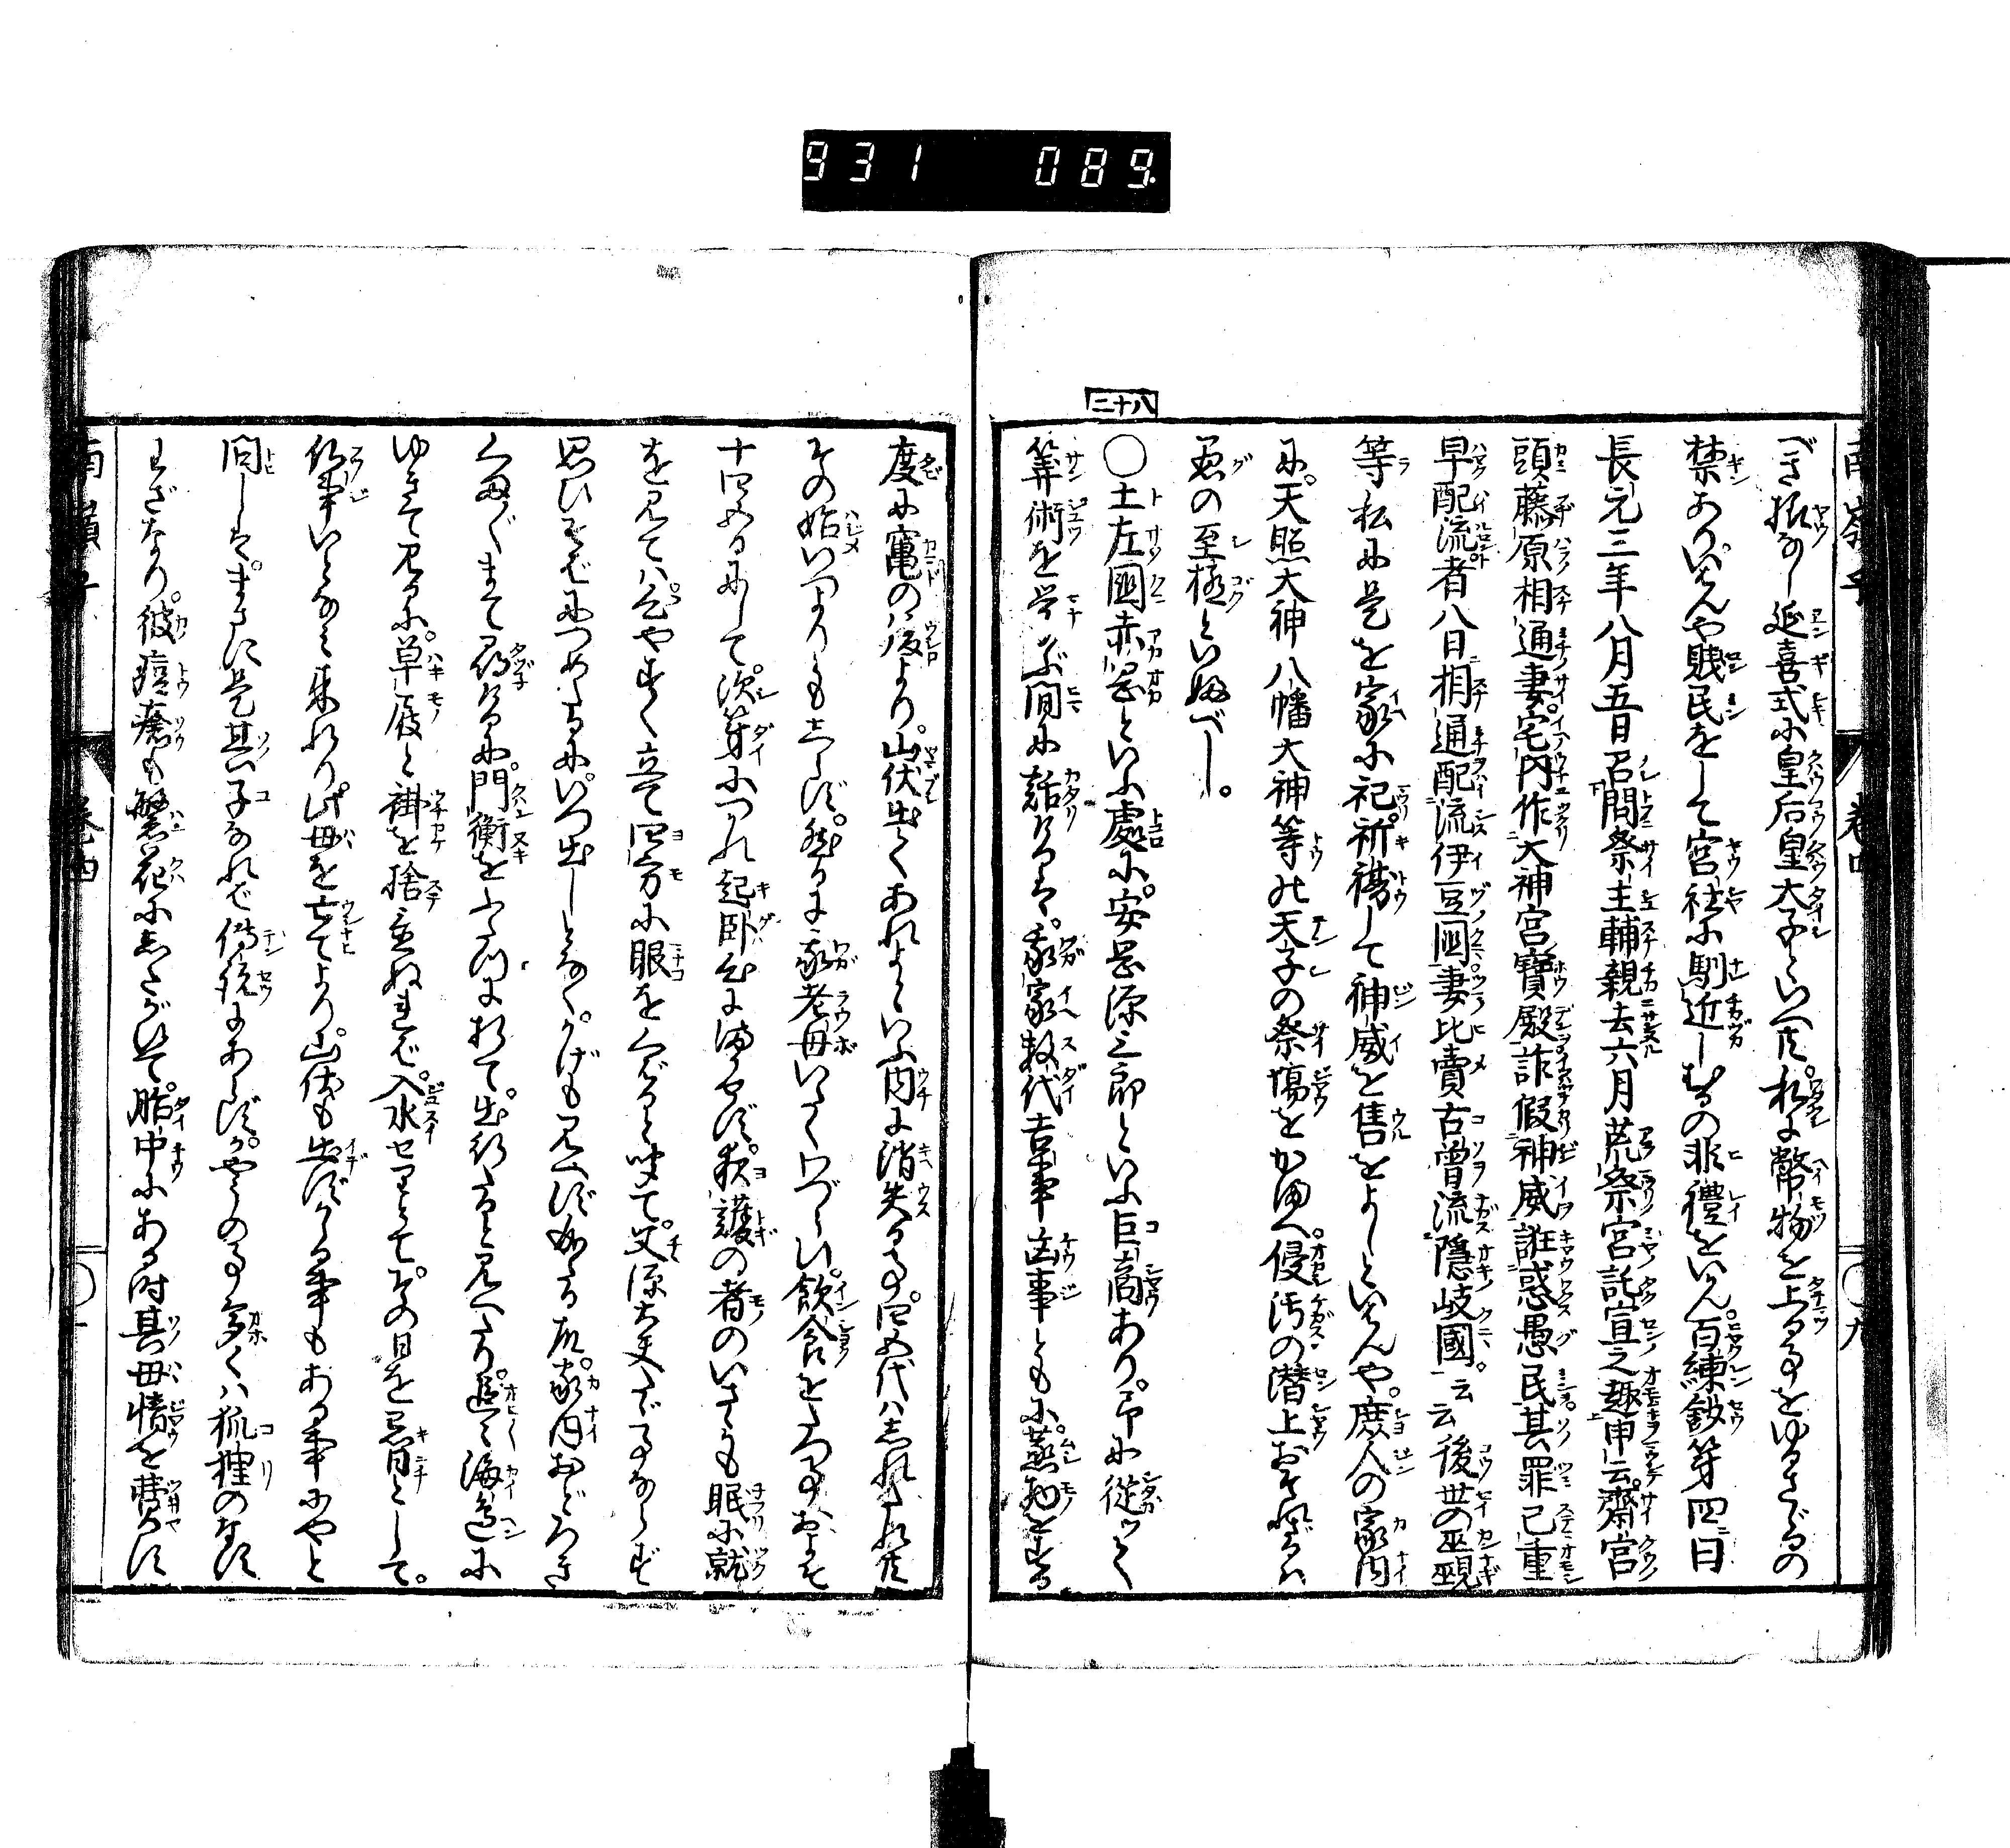 931 089.
べき様なし延喜式に皇后皇太子といへ共。私に幣物を上る事をゆるさゞるの
禁あり。いはんや賤民をして宮社に馴近しむるの非禮をいはん。百練鈔第四ニ曰
長元三年八月五日召問祭主輔親去六月荒祭宮託宣之趣申云。齋宮
頭藤原相通妻。宅内作大神宮寳殿詐假神威誑惑愚民其罪已重
早配流者八日相通配流伊豆國妻比賣古曽流隱岐國。云云後世の巫覡
等私に是を家に祀。祈禱して神威を售をよしといはんや。庶人の家内
に。天照大神八幡大神等の天子の祭場をかまへ。侵汚の潜上おそるゝは
愚の至極といふべし。
二十八
〇土左國赤岡といふ處に。安岡源三郎といふ巨商あり。予に従つく
筭術を学ぶ間に話けるは。我家数代吉事凶事ともに。蒸物をする
度に竃の後より。山伏出てあれよといふ内に消失る事。四五代は忘れたれ共
その始いつよりも志らず。然るに我老母いたくわづらひ。飲食をたつ事おほよそ
十四五日にして。次第につかれ起卧心に満せず。夜護の者のいさゝも眠に就
を見ては。必やすく立て四方に眼をくばると
思ひそばにつめたるに。いつ出しとなくかげも見へず成たる故。家内おどろき
くまぐまで尋けるに。門衡をに於て。出行たると見へたり。追々海邉に
ゆきて見るに。草履と褂を捨置ぬれば。入水せりとて。その日を忌日として。
仏事いとなみ来れり。此母を亡てより。山伏も出ずかゝる事もある事にやと
問しは。まさに是其子なれば傳説にあらず。かやうの事多くは狐狸のなす
わざなり。彼痘瘡も繁花にしたがひて。胎中にある時其母情を費さず
南嶺子
巻四